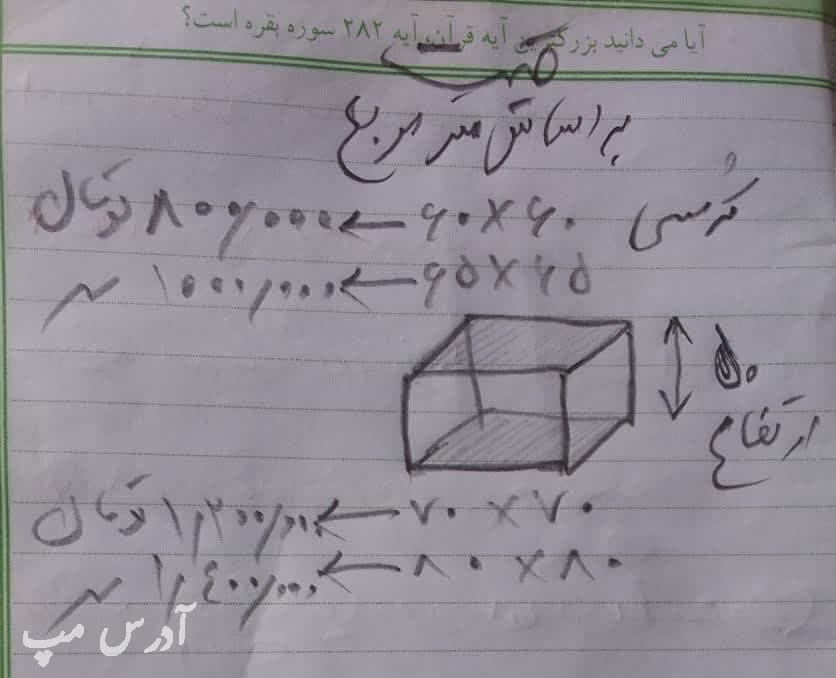 آیا می دانید بزرگترین آیه قرآن، آیه ۲۸۲ سوره بقره است؟
بر اساس متر مربع
کُرسی ۶۰×۶۰ ← ۸۰۰/۰۰۰ تومان
۶۵×۶۵ ← ۱۰۰۰/۰۰۰ ~
۵۰
ارتفاع
۷۰×۷۰ ← ۱,۲۰۰/۰۰۰ تومان
۸۰×۸۰ ← ۱,۴۰۰/۰۰۰ ~
آدرس مپ